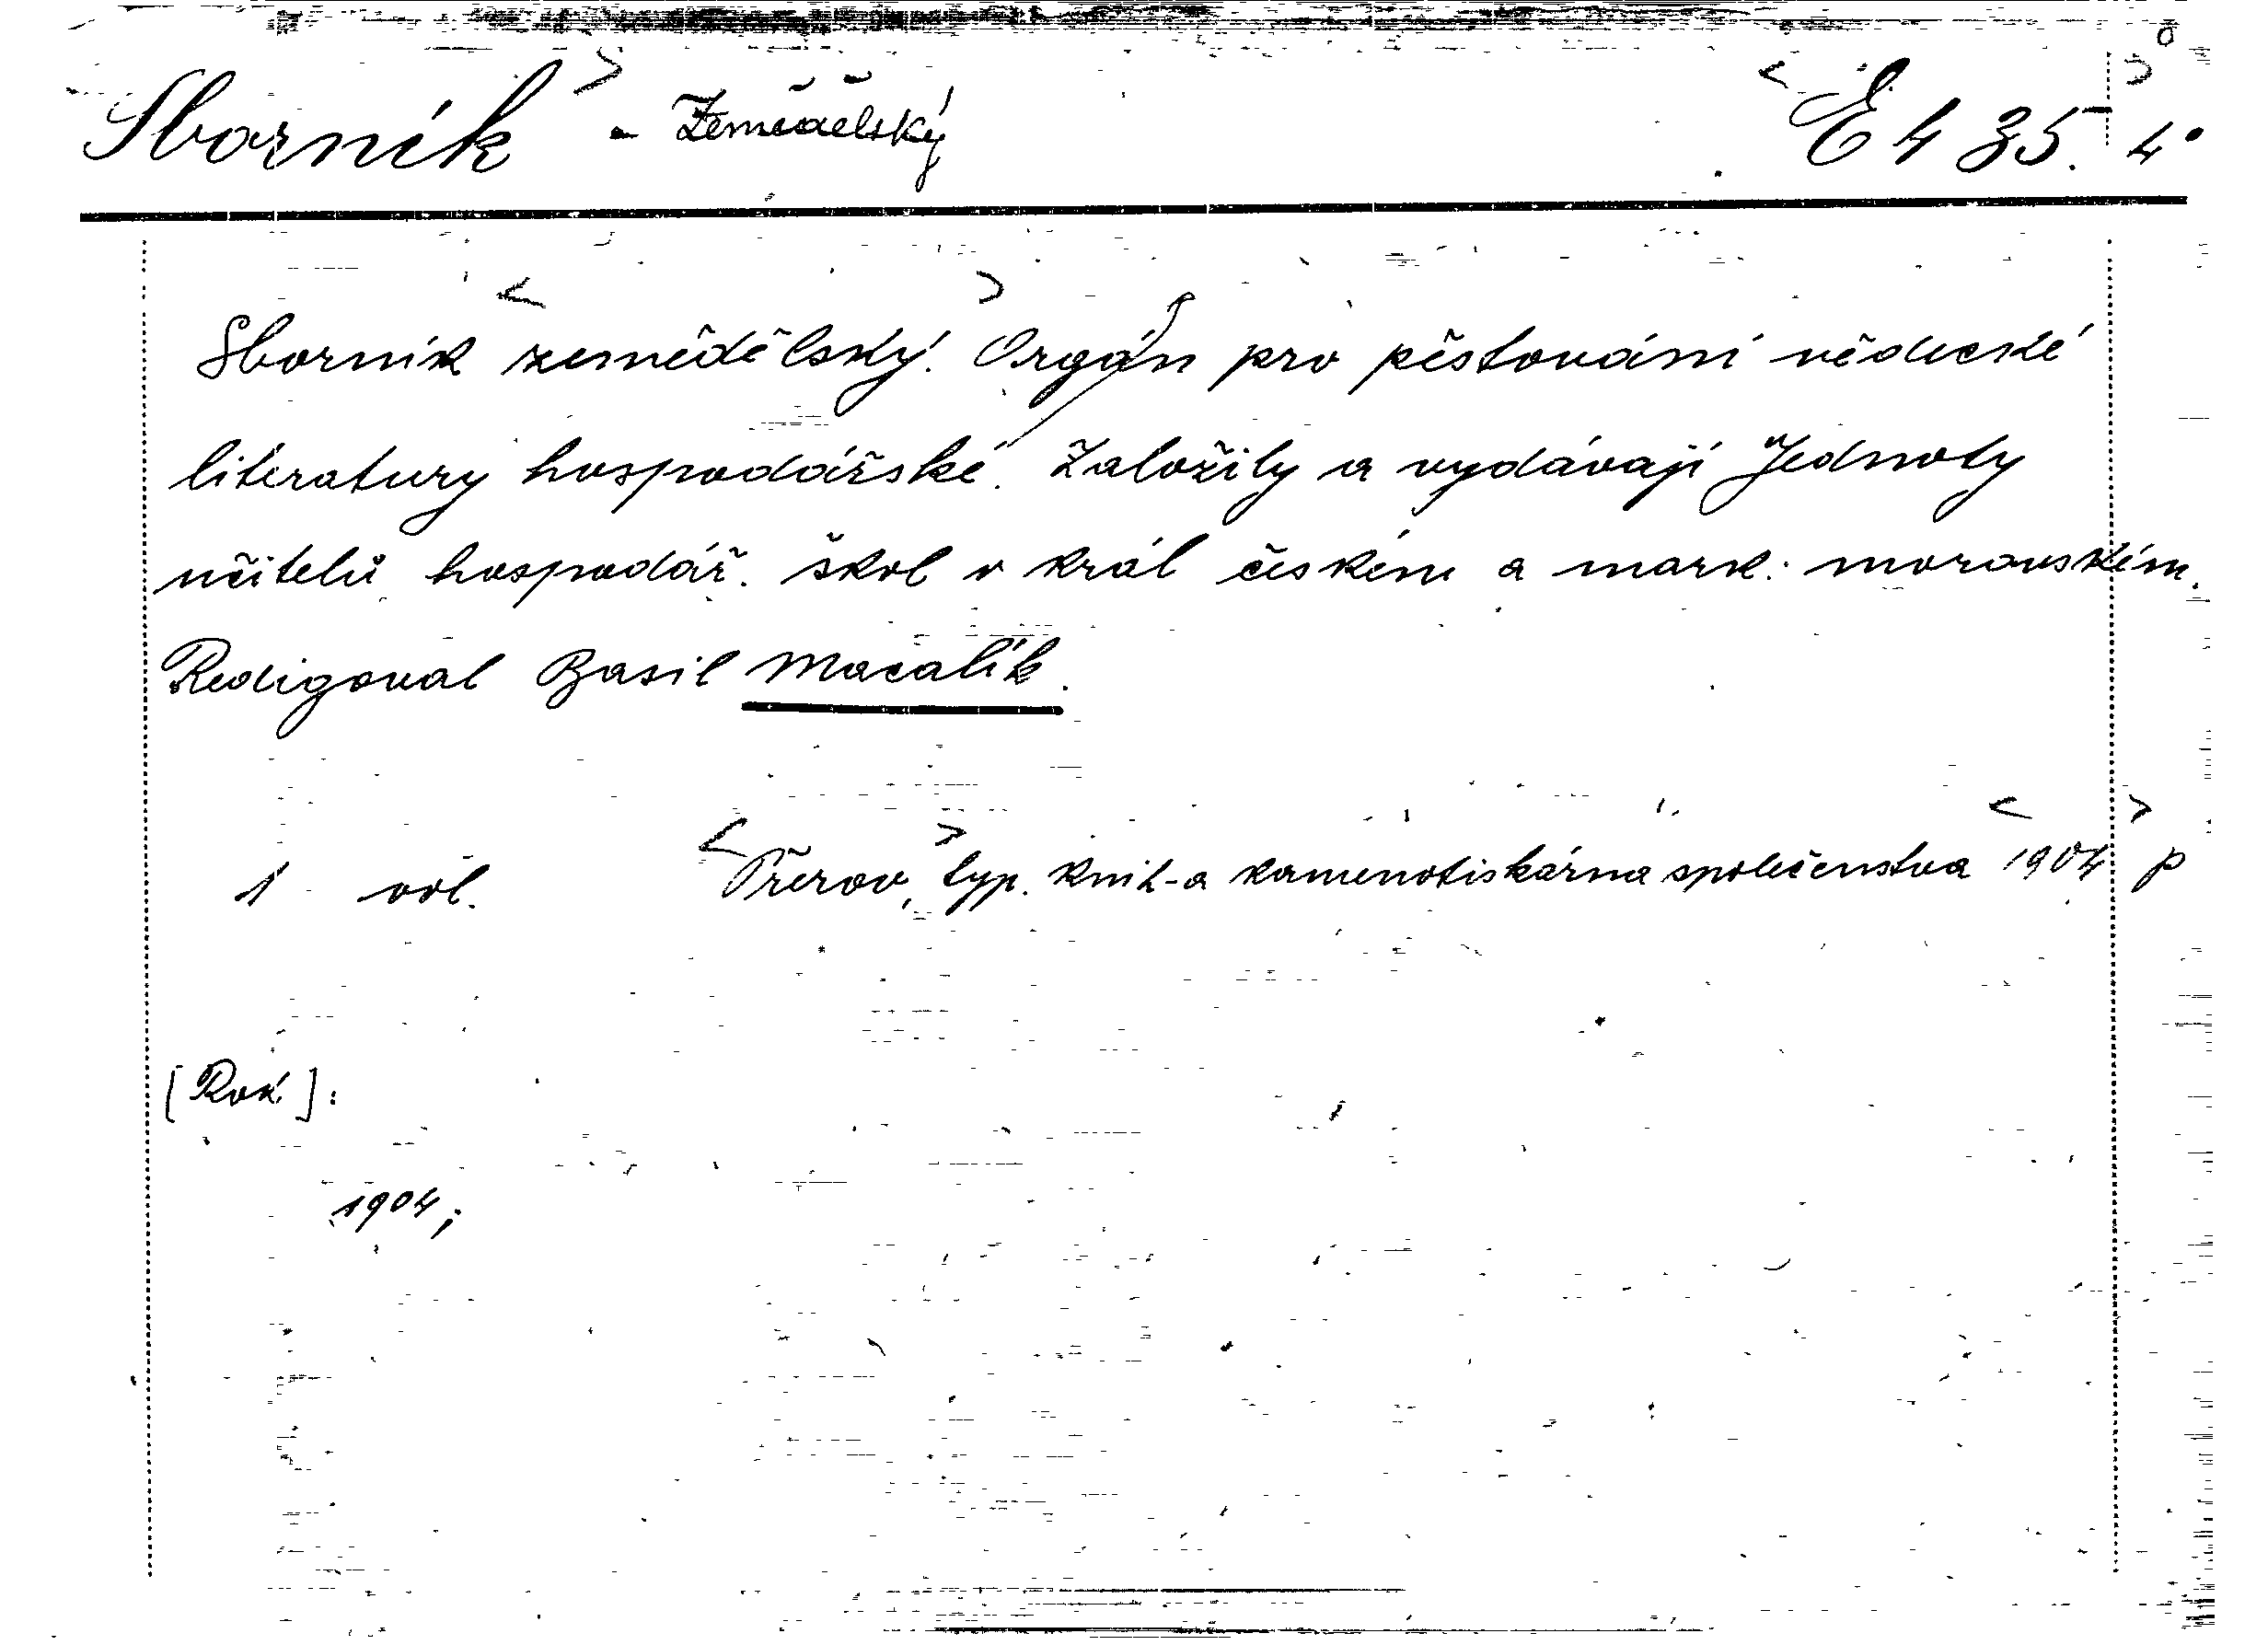 Sborník - Zemědělský E 435. 4°
Sborník zemědělský. Orgán pro pěstování vědecké
literatury hospodářské. Založily a vydávají Jednoty
učitelů hospodář. škol v král českém a mark. moravském.
Redigoval Basil Macalík.
1 vol. Přerov, typ. knih- a kamenotiskárna společenstva 1904 p
[Rok]:
1904;